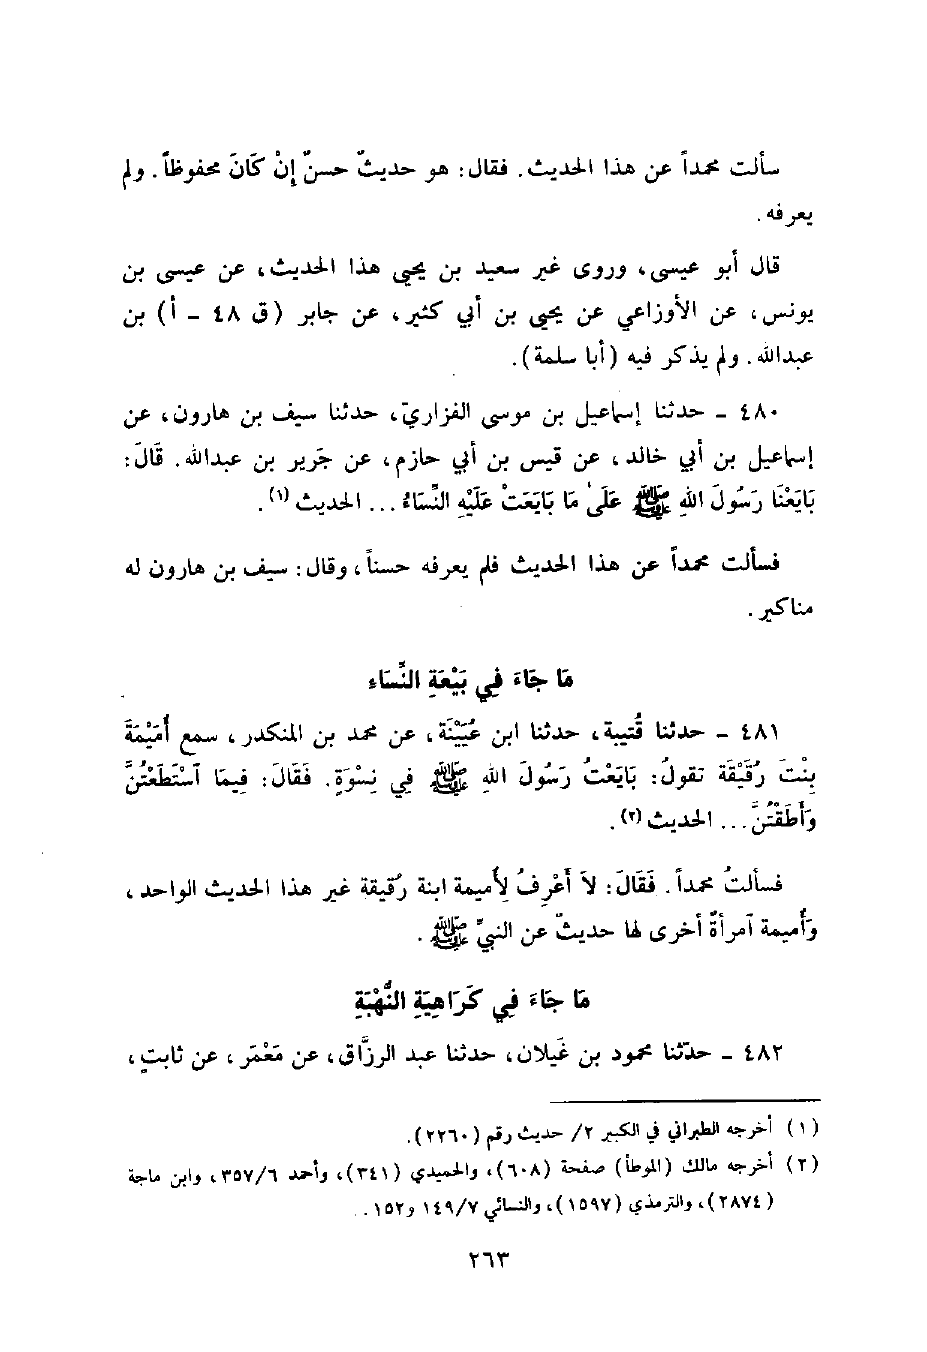 سألت محمداً عن هذا الحديث. فقال: هو حديثٌ حسنٌ إنْ كَانَ محفوظاً. ولم
يعرفه.
قال أبو عيسى، وروى غير سعيد بن يحيى هذا الحديث، عن عيسى بن
يونس، عن الأوزاعي عن يحيى بن أبي كثير، عن جابر (ق ٤٨ - أ) بن
عبدالله. ولم يذكر فيه (أبا سلمة).
٤٨٠ - حدثنا إسماعيل بن موسى الفزاريّ، حدثنا سيف بن هارون، عن
إسماعيل بن أبي خالد، عن قيس بن أبي حازم، عن جَرير بن عبدالله. قَالَ:
بَايَعْنَا رَسُولَ اللهِ ﷺ عَلَىٰ مَا بَايَعَتْ عَلَيْهِ النِّسَاءُ... الحديث(١).
فسألت محمداً عن هذا الحديث فلم يعرفه حسناً، وقال: سيف بن هارون له
مناكير.
مَا جَاءَ فِي بَيْعَةِ النِّسَاء
٤٨١ - حدثنا قُتيبة، حدثنا ابن عُيَيْنَة، عن محمد بن المنكدر، سمع أُمَيْمَةَ
بِنْتَ رُقَيْقَة تقولُ: بَايَعْتُ رَسُولَ اللهِ ﷺ فِي نِسْوَةٍ. فَقَالَ: فِيمَا آسْتَطَعْتُنَّ
وَأَطَقْتُنَّ... الحديث(٢).
فسألتُ محمداً. فَقَالَ: لاَ أَعْرِفُ لِأميمة ابنة رُقيقة غير هذا الحديث الواحد،
وَأُميمة آمرأةٌ أخرى لها حديثٌ عن النبيِّ ﷺ.
مَا جَاءَ فِي كَرَاهِيَةِ النُّهْبَةِ
٤٨٢ - حدّثنا محمود بن غَيلان، حدثنا عبد الرزَّاق، عن مَعْمَر، عن ثابتٍ،
(١) أخرجه الطبراني في الكبير ٢/ حديث رقم (٢٢٦٠).
(٢) أخرجه مالك (الموطأ) صفحة (٦٠٨)، والحميدي (٣٤١)، وأحمد ٣٥٧/٦، وابن ماجة
(٢٨٧٤)، والترمذي (١٥٩٧)، والنسائي ١٤٩/٧ و١٥٢.
٢٦٣